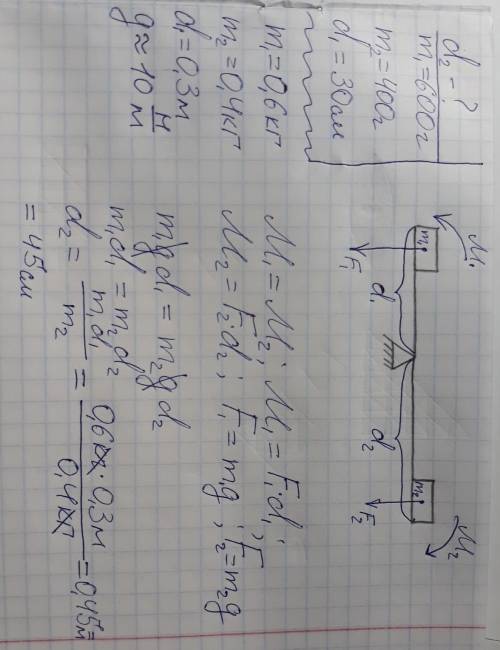 d₂ - ?
m₁ = 600г
m₂ = 400г
d₁ = 30см
m₁ = 0,6 кг
m₂ = 0,4 кг
d₁ = 0,3 м
g ≈ 10 Н/м
M₁
m₁
F₁
d₁
d₂
m₂
F₂
M₂
M₁ = M₂; M₁ = F₁·d₁;
M₂ = F₂·d₂; F₁ = m₁g; F₂ = m₂g
m₁gd₁ = m₂gd₂
m₁d₁ = m₂d₂
d₂ = m₁d₁/m₂ = 0,6кг·0,3м/0,4кг = 0,45м =
= 45см